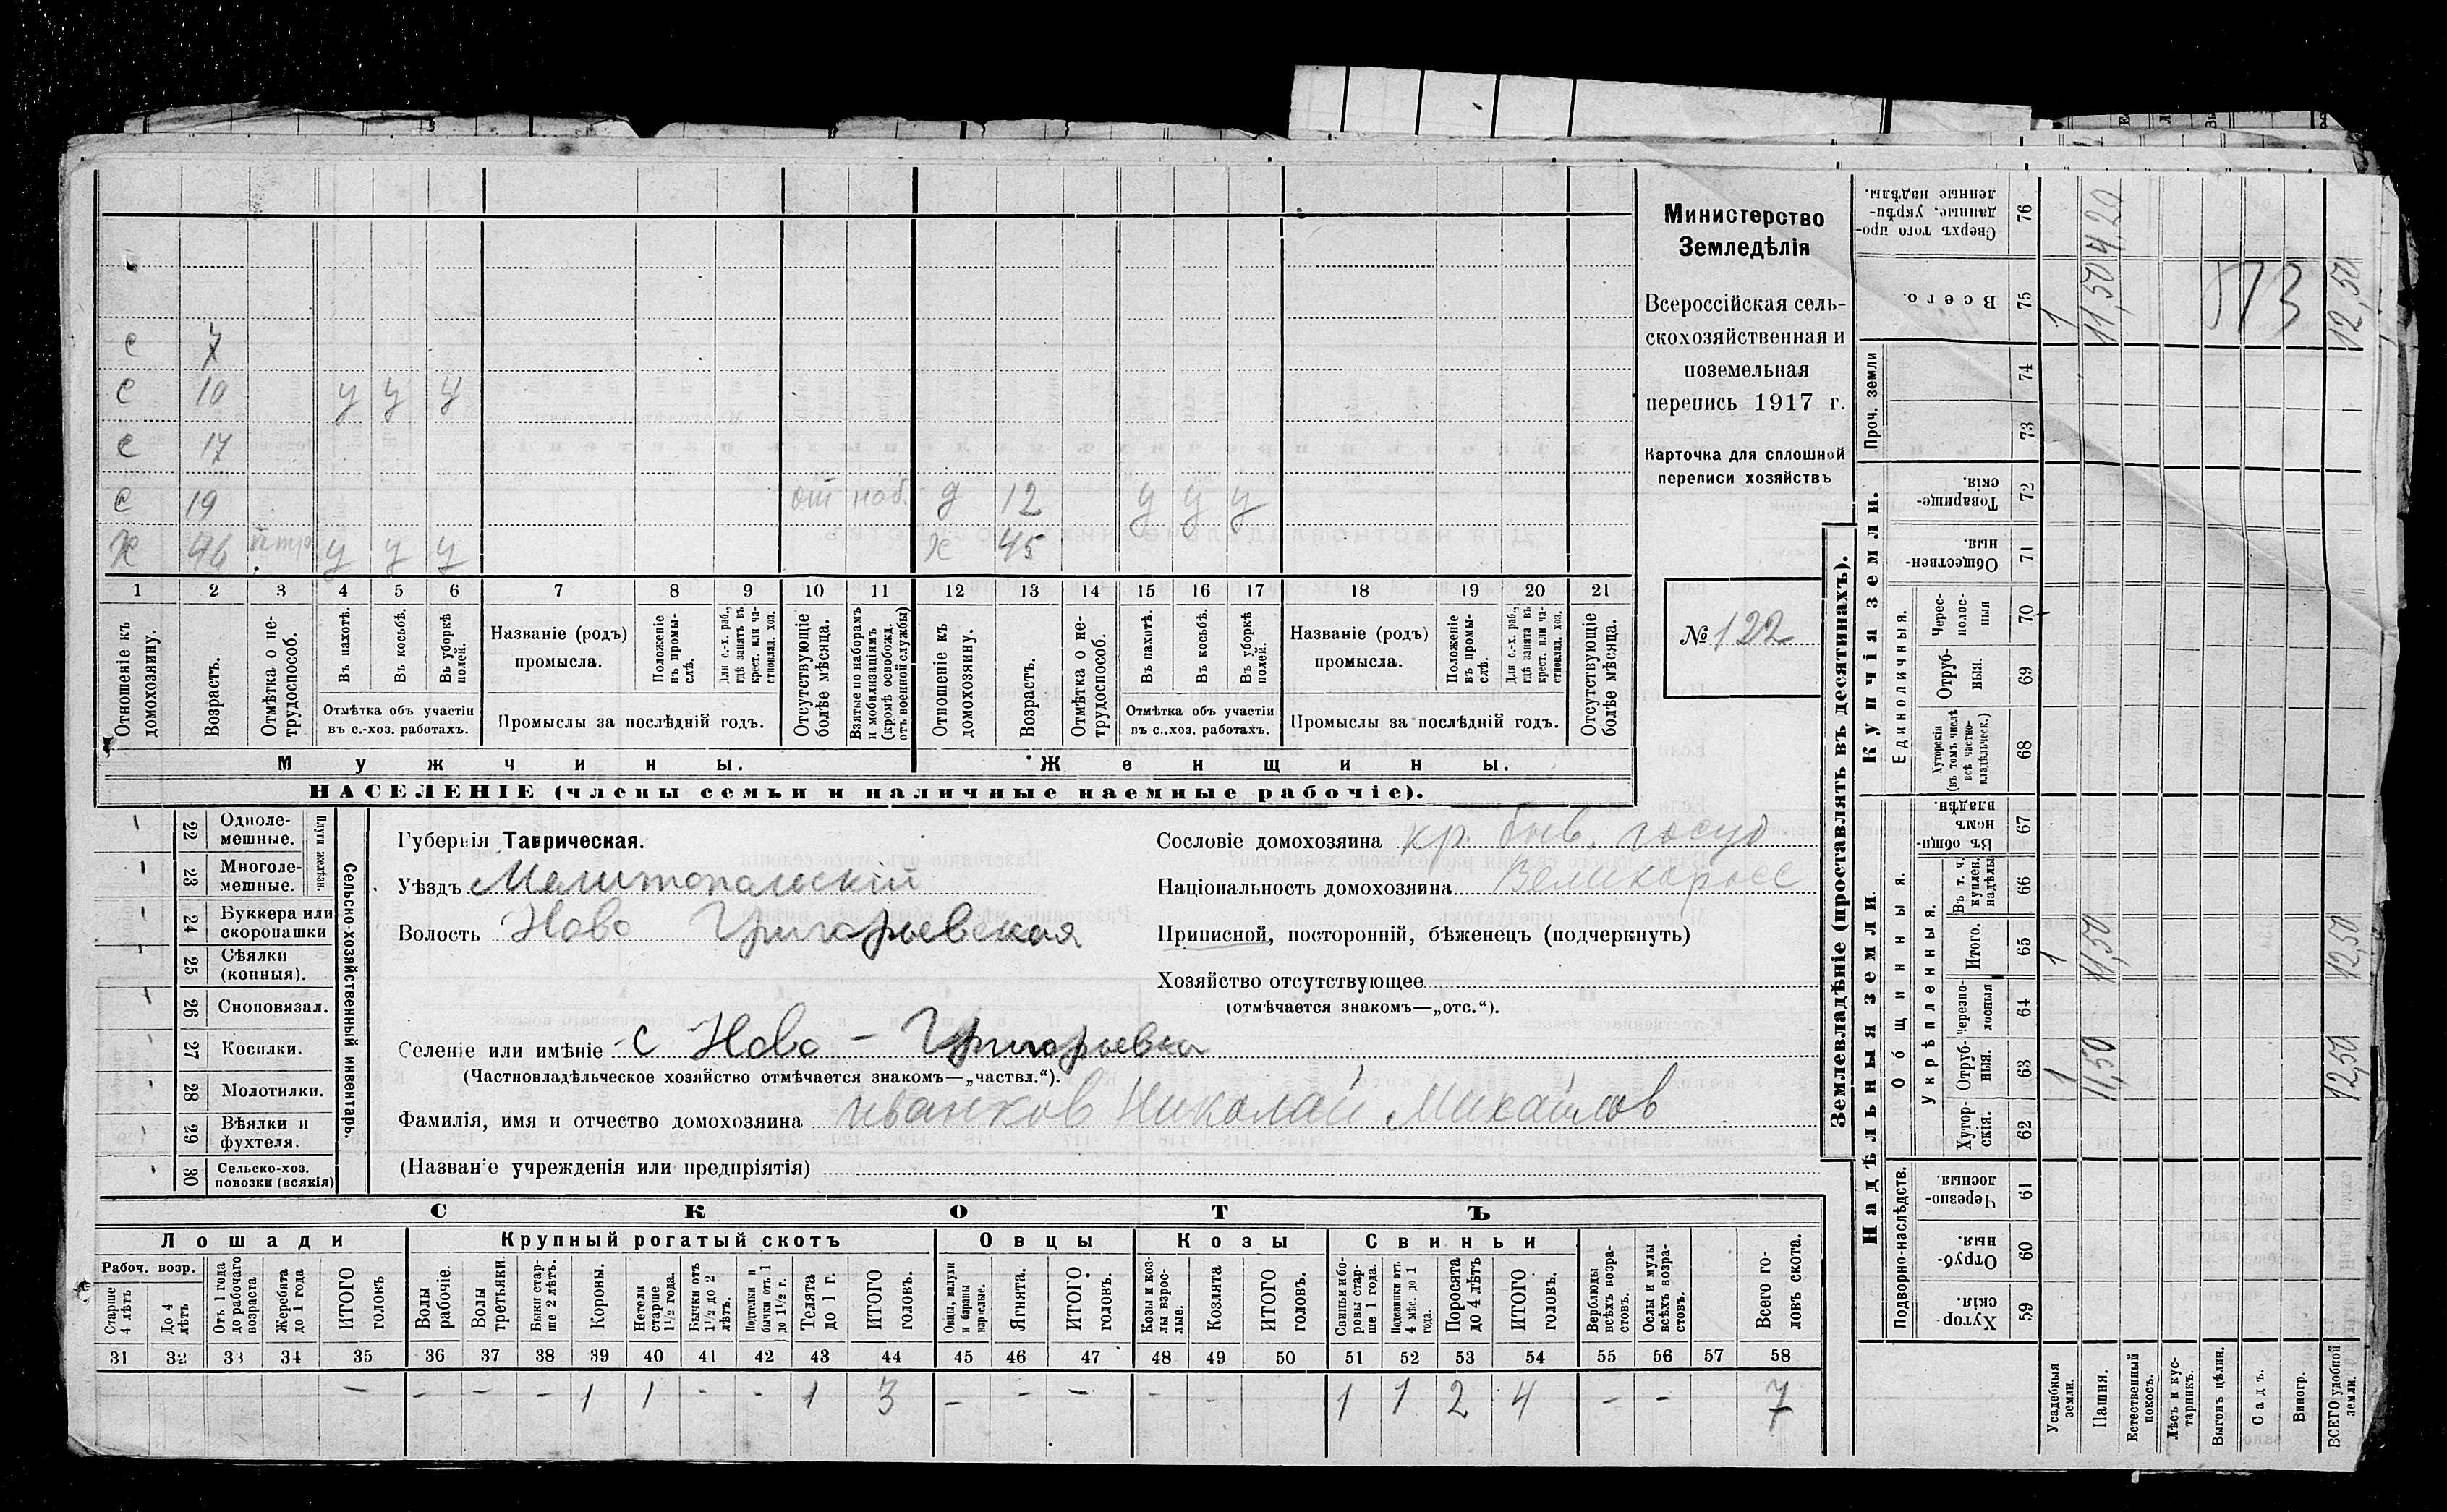 Министерство
Земледѣлія
Всероссійская сель-
скохозяйственная и
поземельная
перепись 1917 г.
Карточка для сплошной
переписи хозяйствъ
№ 122
с 7
с 10 у у у
с 17
с 19 от наб. д 12 у у у
х 46 у у у х 45
1 2 3 4 5 6 7 8 9 10 11 12 13 14 15 16 17 18 19 20 21
Отношеніе къ домохозяину.
Возрастъ.
Отмѣтка о не-трудоспособ.
Въ пахотѣ.
Въ косьбѣ.
Въ уборкѣ полей.
Отмѣтка объ участіи
въ с.-хоз. работахъ.
Названіе (родъ)
промысла.
Положеніе въ промы-слѣ.
Для с.-х. раб., гдѣ занятъ въ крест. или ча-стновлад. хоз.
Промыслы за послѣдній годъ.
Отсутствующіе болѣе мѣсяца.
Взятые по наборамъ и мобилизаціямъ (кромѣ освобожд. отъ военной службы)
Отношеніе къ домохозяину.
Возрастъ.
Отмѣтка о не-трудоспособ.
Въ пахотѣ.
Въ косьбѣ.
Въ уборкѣ полей.
Отмѣтка объ участіи
въ с..хоз. работахъ.
Названіе (родъ)
промысла.
Положеніе въ промы-слѣ.
Для с.-х. раб., гдѣ занята въ крест. или ча-стновлад. хоз.
Промыслы за послѣдній годъ.
Отсутствующіе болѣе мѣсяца.
Мужчины. Женщины.
НАСЕЛЕНІЕ (члены семьи и наличные наемные рабочіе).
Сельско-хозяйственный инвентарь.
Плуги желѣзн.
22 Одноле-мешные.
23 Многоле-мешные.
24 Буккера или скоропашки
25 Сѣялки (конныя).
26 Сноповязал.
27 Косилки.
28 Молотилки.
29 Вѣялки и фухтеля.
30 Сельско-хоз. повозки (всякія)
Губернія Таврическая.
Уѣздъ Мелитопольскій
Волость Ново Григорьевская
Селеніе или имѣніе с Ново - Григорьевка
(Частновладѣльческое хозяйство отмѣчается знакомъ—„частвл.“).
Фамилія, имя и отчество домохозяина Иванков Николай Михайлов
(Названіе учрежденія или предпріятія)
Сословіе домохозяина кр. быв. госуд
Національность домохозяина Великоросс
Приписной, посторонній, бѣженецъ (подчеркнуть)
Хозяйство отсутствующее
(отмѣчается знакомъ—„отс.“).
СКОТЪ
Лошади Крупный рогатый скотъ Овцы Козы Свиньи
Рабоч. возр.
Старше 4 лѣтъ
До 4 лѣтъ
Отъ 1 года до рабочаго возраста
Жеребята до 1 года
ИТОГО головъ
Волы рабочіе.
Волы третьяки.
Быки стар-ше 2 лѣтъ.
Коровы.
Нетели старше 1½ года.
Бычки отъ 1½ до 2 лѣтъ.
Подтелки и бычки отъ 1 до 1½ г.
Телята до 1 г.
ИТОГО головъ.
Овцы, валухи и бараны взрослые.
Ягнята.
ИТОГО головъ.
Козы и коз-лы взрос-лые.
Козлята
ИТОГО головъ.
Свиньи и бо-ровы стар-ше 1 года.
Подсвинки отъ 4 мѣс. до 1 года.
Поросята до 4 лѣтъ
ИТОГО головъ.
Верблюды всѣхъ возра-стовъ.
Ослы и мулы всѣхъ возра-стовъ.
Всего го-ловъ скота.
31 32 33 34 35 36 37 38 39 40 41 42 43 44 45 46 47 48 49 50 51 52 53 54 55 56 57 58
- - - - 1 1 - - 1 3 - - - - - 1 1 2 4 - - 7
Землевладѣніе (проставлять въ десятинахъ).
Купчія земли.
Надѣльныя земли.
Проч. земли
Единоличныя.
Общинныя.
Укрѣпленныя.
Подворно-наслѣдств.
Сверхъ того про-данные, укрѣп-ленные надѣлы. 76
Всего. 75
74
73
Товарище-скія. 72
Обществен-ныя. 71
Черес-полос-ныя 70
Отруб-ныя. 69
Хуторскія (въ томъ числѣ всѣ частно-владѣльческ.) 68
Въ общин-номъ владѣн. 67
Въ т. ч. куплен. надѣлы 66
Итого. 65
Черезпо-лосныя 64
Отруб-ныя. 63
Хутор-скія. 62
Черезпо-лосныя. 61
Отруб-ныя. 60
Хутор-скія. 59
Усадебныя земли. 1 1 1
Пашня. 11,50 11,50 11,50 420
Естественный покосъ.
Лѣсъ и кус-тарникъ.
Выгонъ цѣлин.
Садъ.
Виногр.
ВСЕГО удобной земли. 12,50 12,50 12,50
573